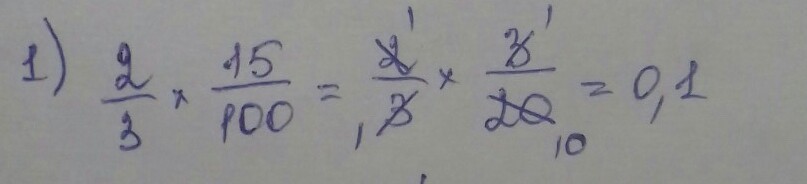 1) 2/3 × 15/100 = 2¹/₁3 × 3¹/20₁₀ = 0,1